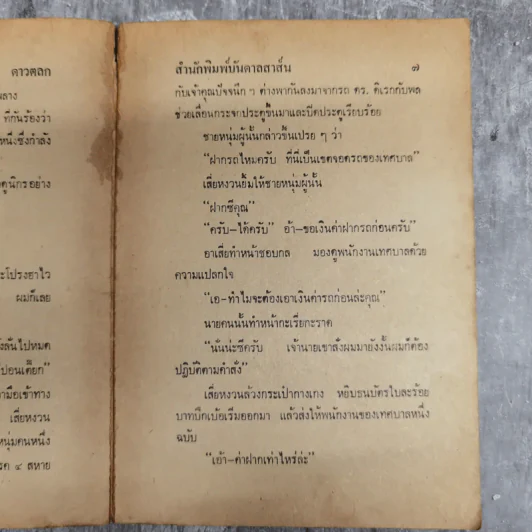 ดาวตลก
ลาง
ที่กันร้องว่า
หนึ่งซึ่งกำลัง
ดูนิกรอย่าง
ะโปรงฮาไว
ผมก็เลย
งลั่นไปหมด
ปอนเด็๊อก"
ามือเข้าทาง
เสี่ยหงวน
หนุ่มคนหนึ่ง
รค ๔ สหาย
สำนักพิมพ์บันดาลสาส์น ๗
กับเจ้าคุณปัจจนึก ๆ ต่างพากันลงมาจากรถ ดร. ดิเรกกับพล
ช่วยเลื่อนกระจกประตูขึ้นมาและปิดประตูเรียบร้อย
ชายหนุ่มผู้นั้นกล่าวขึ้นเปรย ๆ ว่า
"ฝากรถไหมครับ ที่นี่เป็นเขตจอดรถของเทศบาล"
เสี่ยหงวนยิ้มให้ชายหนุ่มผู้นั้น
"ฝากซีคุณ"
"ครับ–ได้ครับ อ้า–ขอเงินค่าฝากรถก่อนครับ"
อาเสี่ยทำหน้าชอบกล มองดูพนักงานเทศบาลด้วย
ความแปลกใจ
"เอ–ทำไมจะต้องเอาเงินค่ารถก่อนล่ะคุณ"
นายคนนั้นทำหน้ากะเรี่ยกะราด
"นั่นน่ะซีครับ เจ้านายเขาสั่งผมมายังงั้นผมก็ต้อง
ปฏิบัติตามคำสั่ง"
เสี่ยหงวนล้วงกระเป๋ากางเกง หยิบธนบัตรใบละร้อย
บาทปึกเบ้อเริ่มออกมา แล้วส่งให้พนักงานของเทศบาลหนึ่ง
ฉบับ
"เอ้า–ค่าฝากเท่าไหร่ล่ะ"